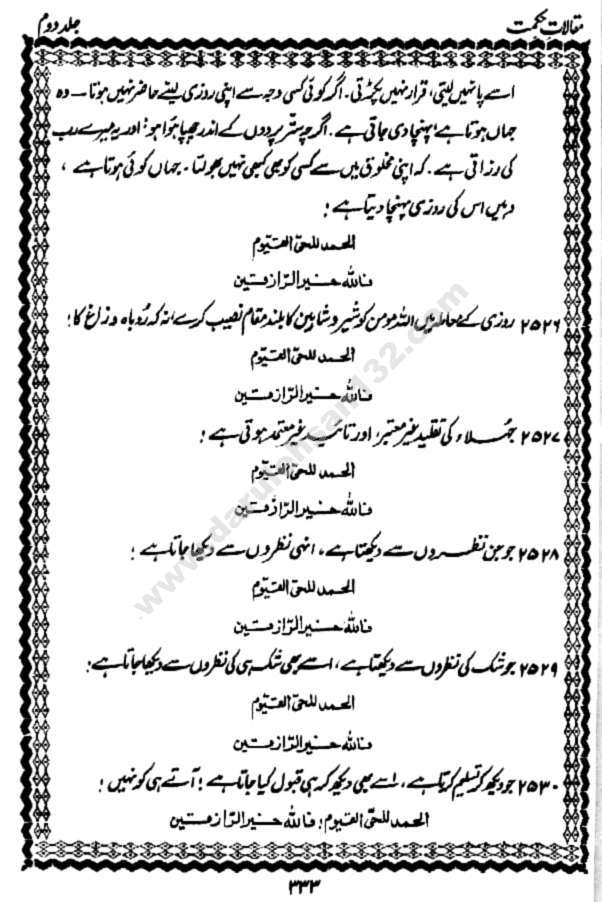 مقالاتِ حکمت
جلد دوم
اسے پا نہیں لیتی، قرار نہیں پکڑتی۔ اگر کوئی کسی وجہ سے اپنی روزی لینے حاضر نہیں ہوتا — وہ
جہاں ہوتا ہے، پہنچا دی جاتی ہے۔ اگرچہ ستر پردوں کے اندر چھپا ہوا ہو! اور یہ میرے رب
کی رزاقی ہے۔ کہ اپنی مخلوق میں سے کسی کو بھی کبھی نہیں بھولتا۔ جہاں کوئی ہوتا ہے،
وہیں اس کی روزی پہنچا دیتا ہے!
الحمد للحیّ القیّوم
فاللہ خیر الرّازقین
۲۵۲۶ روزی کے معاملہ میں اللہ مومن کو شیر و شاہین کا بلند مقام نصیب کرے! نہ کہ رُوباہ و زاغ کا!
الحمد للحیّ القیّوم
فاللہ خیر الرّازقین
۲۵۲۷ جہلاء کی تقلید غیر معتبر، اور تائید غیر معتمد ہوتی ہے!
الحمد للحیّ القیّوم
فاللہ خیر الرّازقین
۲۵۲۸ جو جن نظروں سے دیکھتا ہے، انہی نظروں سے دیکھا جاتا ہے!
الحمد للحیّ القیّوم
فاللہ خیر الرّازقین
۲۵۲۹ جو شک کی نظروں سے دیکھتا ہے، اسے بھی شک ہی کی نظروں سے دیکھا جاتا ہے!
الحمد للحیّ القیّوم
فاللہ خیر الرّازقین
۲۵۳۰ جو دیکھ کر تسلیم کرتا ہے، اسے بھی دیکھ کر ہی قبول کیا جاتا ہے! آتے ہی کو نہیں!
الحمد للحیّ القیّوم! فاللہ خیر الرّازقین
۳۳۳